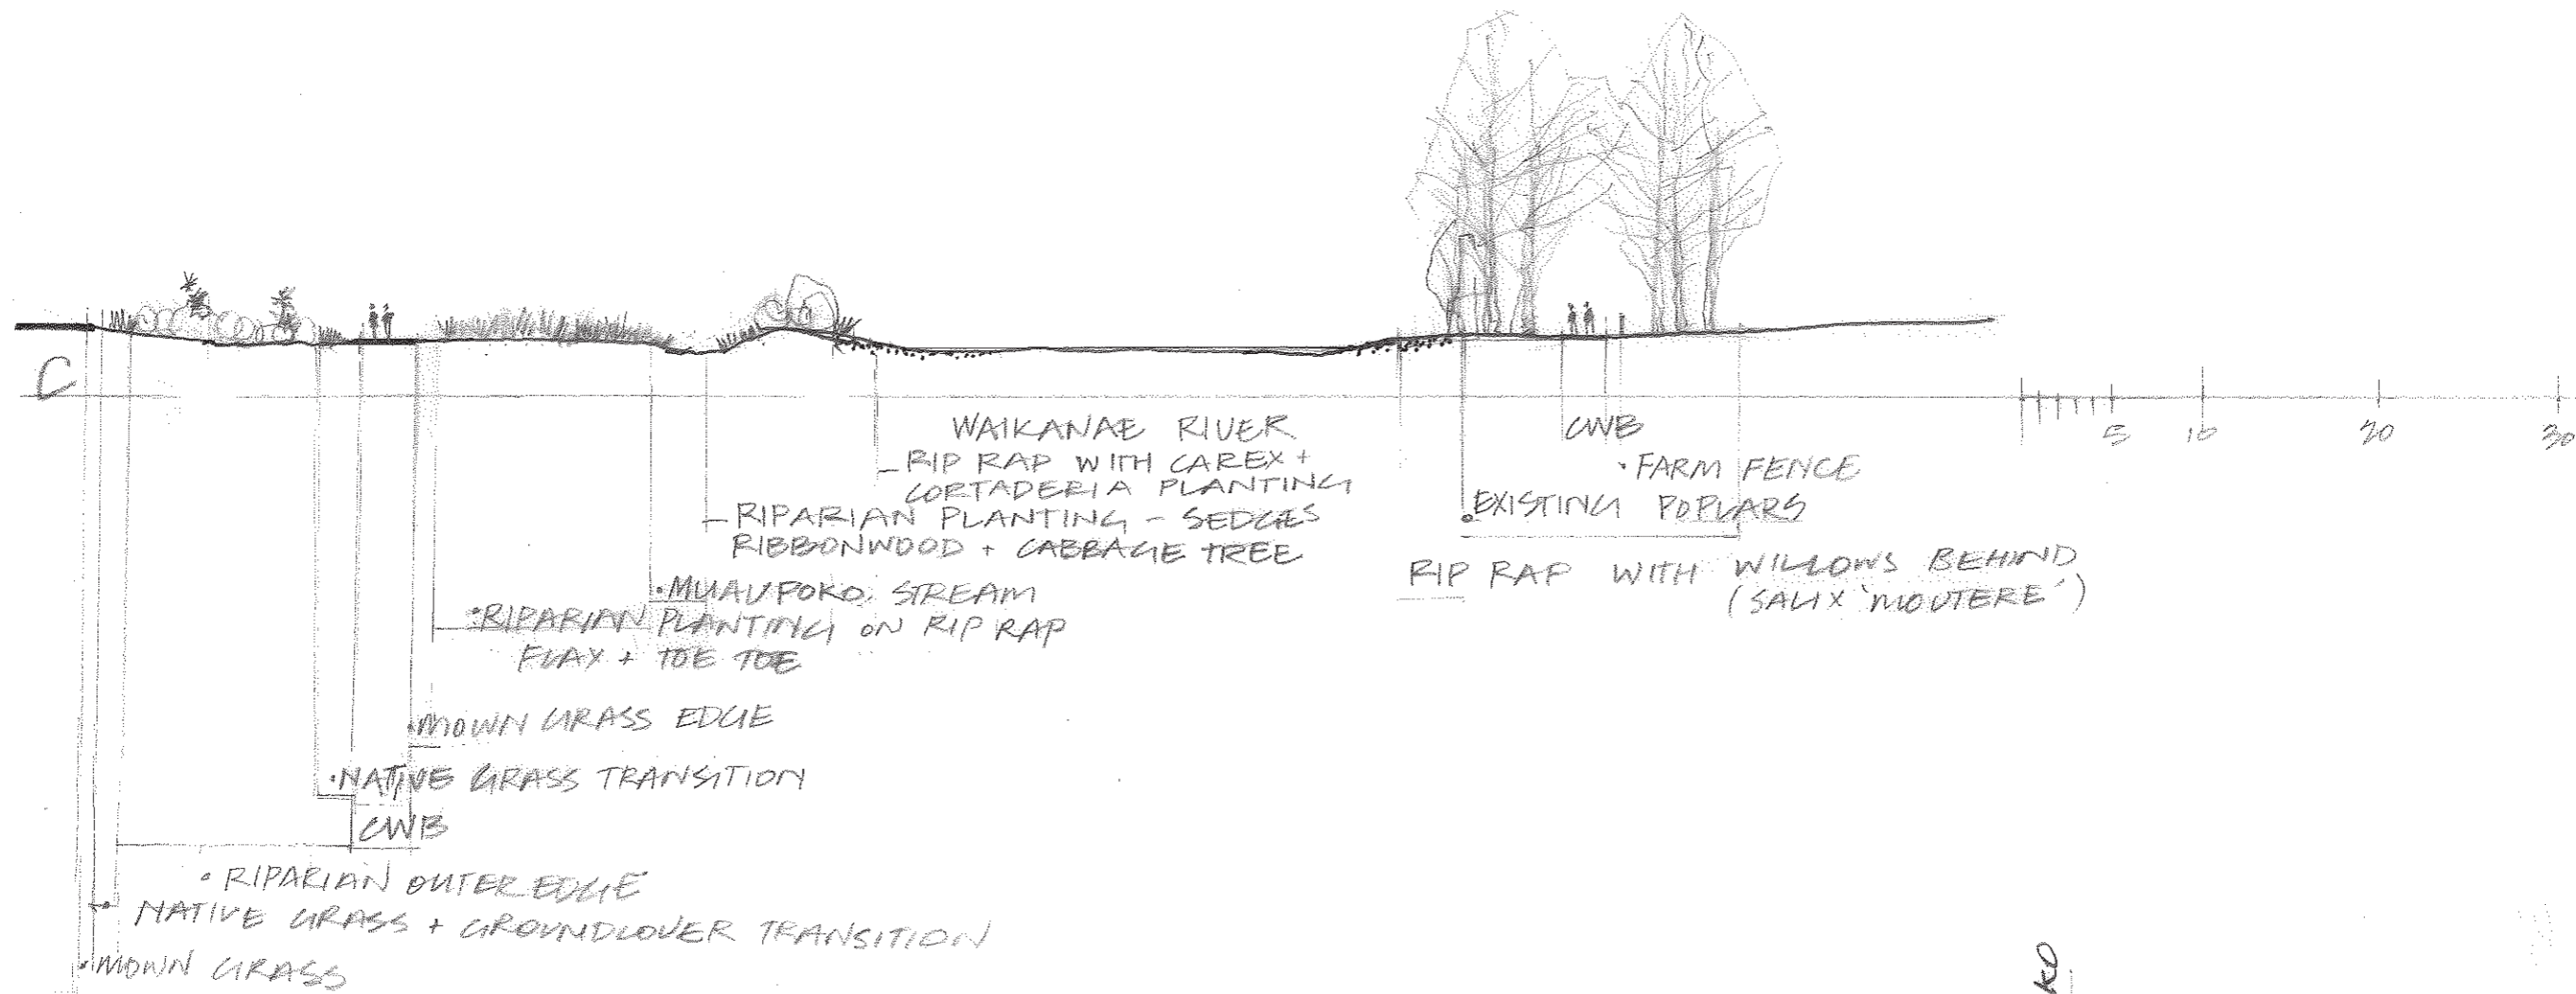 C
WAIKANAE RIVER
RIP RAP WITH CAREX +
CORTADERIA PLANTING
RIPARIAN PLANTING - SEDGES
RIBBONWOOD + CABBAGE TREE
MUAUPOKO STREAM
RIPARIAN PLANTING ON RIP RAP
FLAX + TOE TOE
MOWN GRASS EDGE
NATIVE GRASS TRANSITION
CWB
RIPARIAN OUTER EDGE
NATIVE GRASS + GROUNDCOVER TRANSITION
MOWN GRASS
CWB
FARM FENCE
EXISTING POPLARS
RIP RAP WITH WILLOWS BEHIND
(SALIX 'MOUTERE')
5 10 20 30